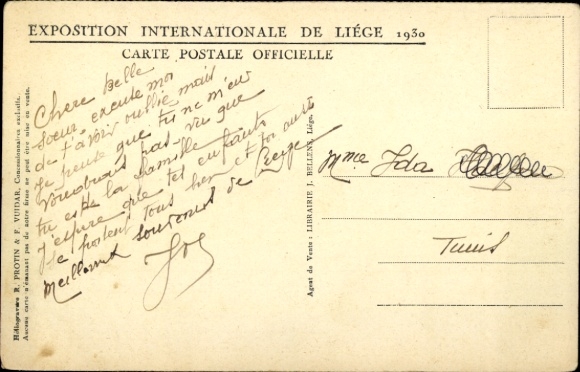 EXPOSITION INTERNATIONALE DE LIÉGE 1930
CARTE POSTALE OFFICIELLE
Chere Belle
Soeur excuse moi
de t'avoir oublié mais
Je pense que tu ne m'en
voudrais pas vu que
tu est de la famille
J'espere que tes enfants
se portent tous bien et toi aussi
Meilleurs souvenirs de Liege
Mme Ida
Tunis
Agent de Vente : LIBRAIRIE J. BELLENS, Liége.
Héliogravure R. PROTIN & F. VUIDAR, Concessionnaires exclusifs.
Aucune carte n'émanant pas de notre firme ne peut être mise en vente.